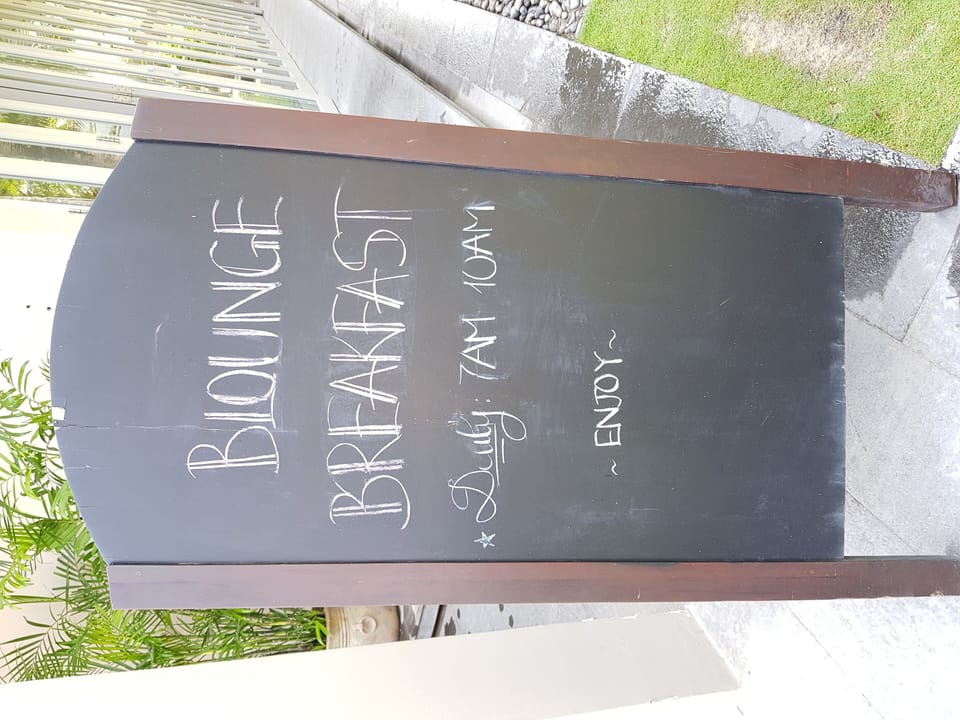 BLOUNGE
BREAKFAST
☆ Daily: 7AM 10AM
~ ENJOY ~